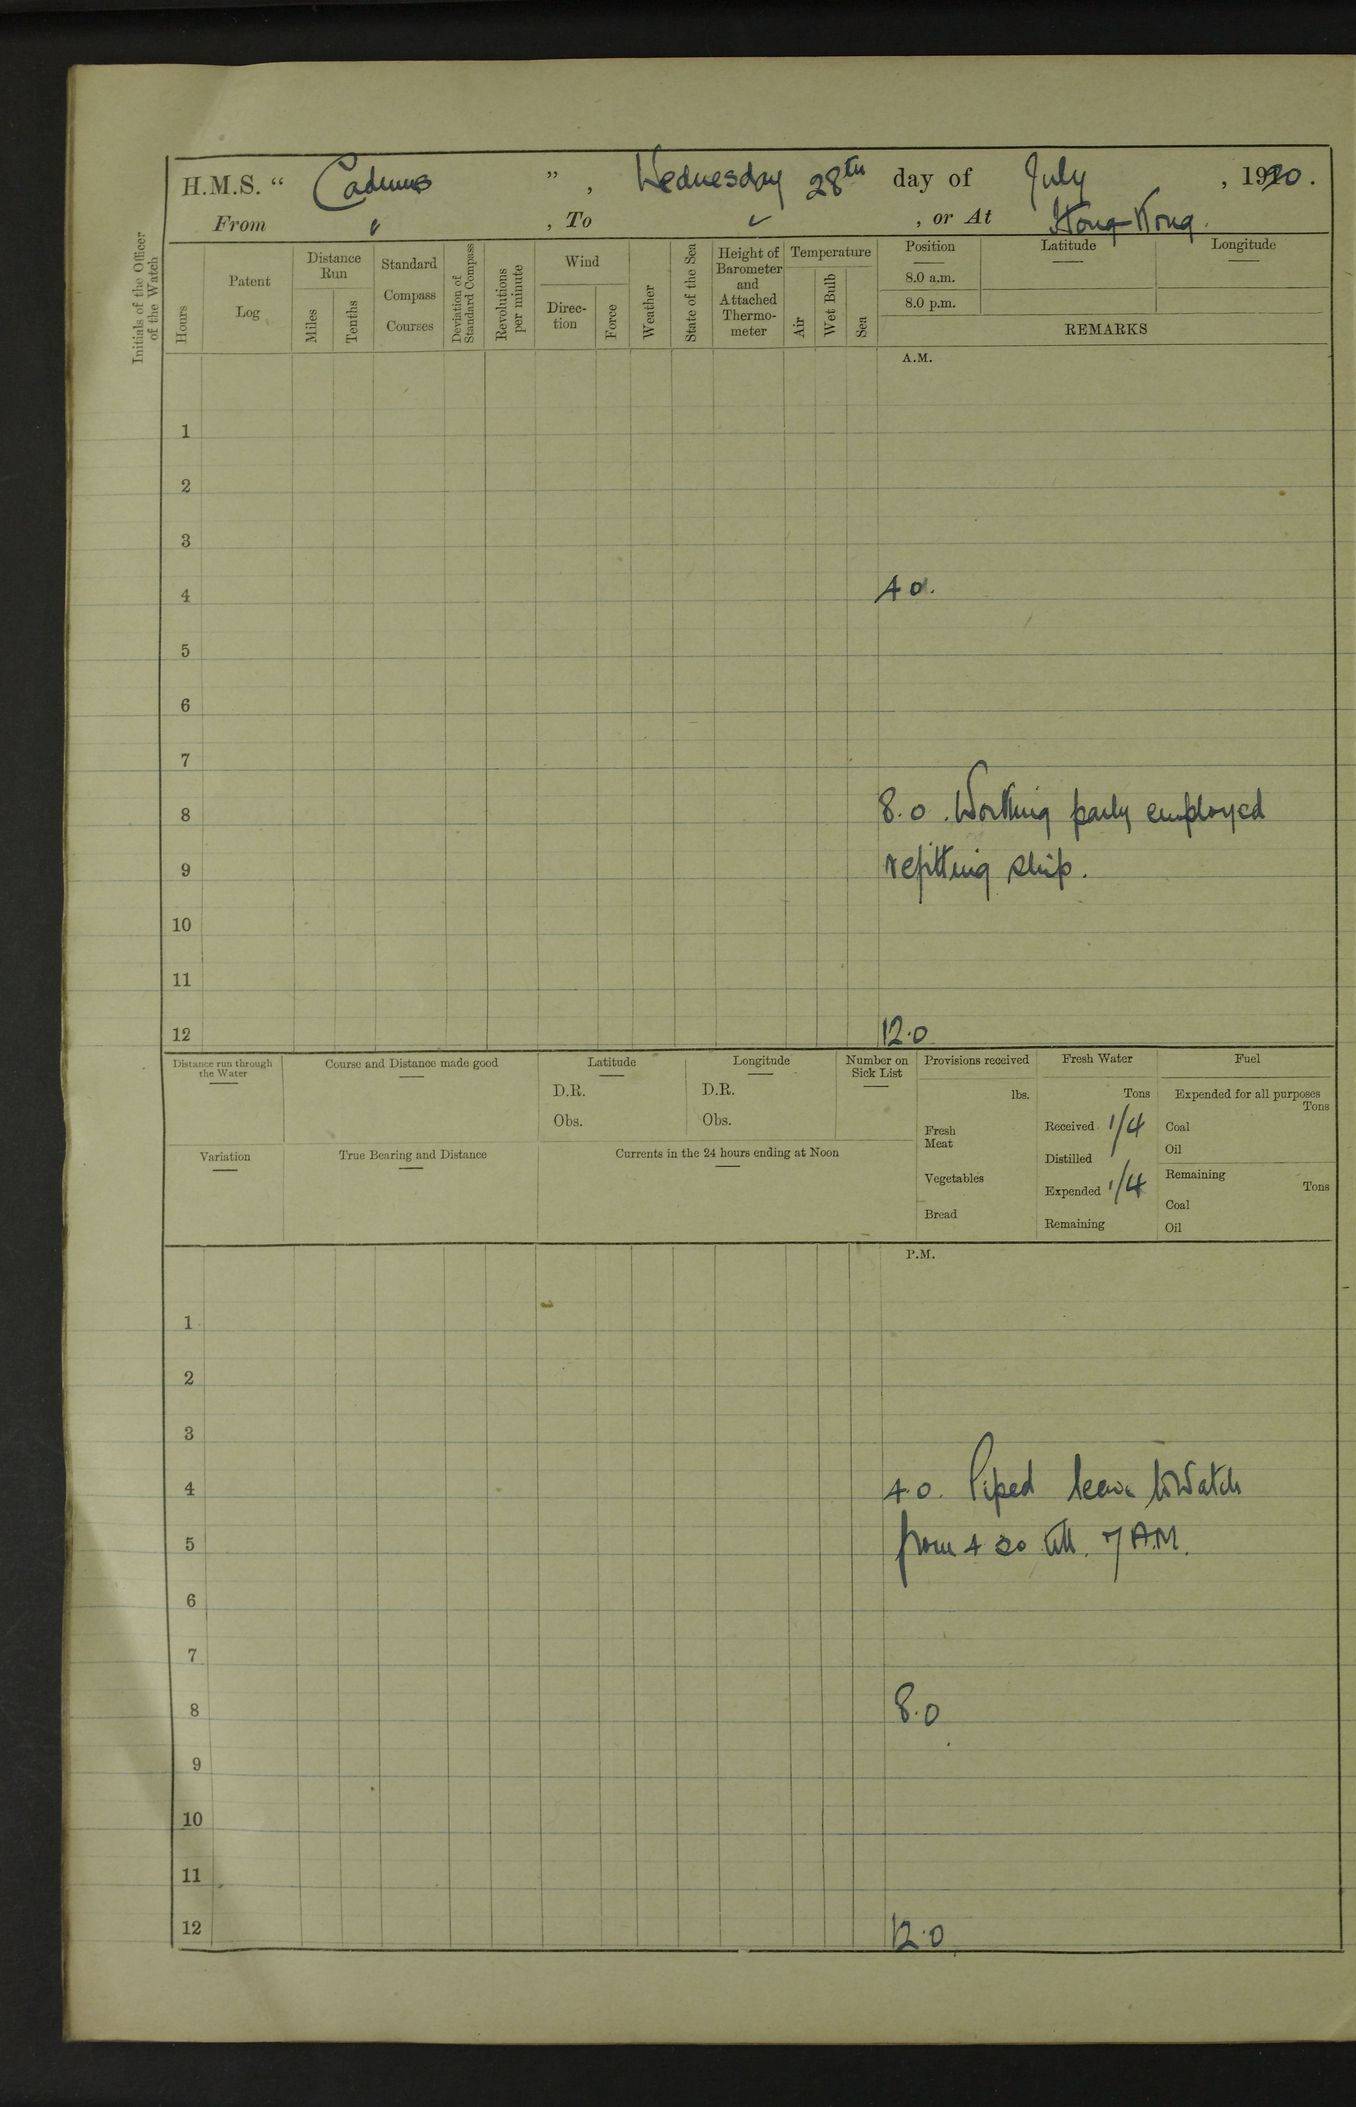 H.M.S. “ Cadmus ” , Wednesday 28th day of July , 1920.
From , To , or At Hong Kong.
Initials of the Officer of the Watch
Hours
Patent Log
Distance Run
Miles
Tenths
Standard Compass Courses
Deviation of Standard Compass
Revolutions per minute
Wind
Direc-tion
Force
Weather
State of the Sea
Height of Barometer and Attached Thermo-meter
Temperature
Air
Wet Bulb
Sea
Position Latitude Longitude
8.0 a.m.
8.0 p.m.
REMARKS
A.M.
1
2
3
4 4 0.
5
6
7
8 8.0. Working party employed
9 refitting ship.
10
11
12 12.0
Distance run through the Water
Course and Distance made good
Latitude
D.R.
Obs.
Longitude
D.R.
Obs.
Number on Sick List
Variation
True Bearing and Distance
Currents in the 24 hours ending at Noon
Provisions received
lbs.
Fresh Meat
Vegetables
Bread
Fresh Water
Tons
Received 1/4
Distilled
Expended 1/4
Remaining
Fuel
Expended for all purposes
Tons
Coal
Oil
Remaining
Tons
Coal
Oil
P.M.
1
2
3
4 4.0. Piped leave to Watch
5 from 4 30 till. 7 A.M.
6
7
8 8.0
9
10
11
12 12.0